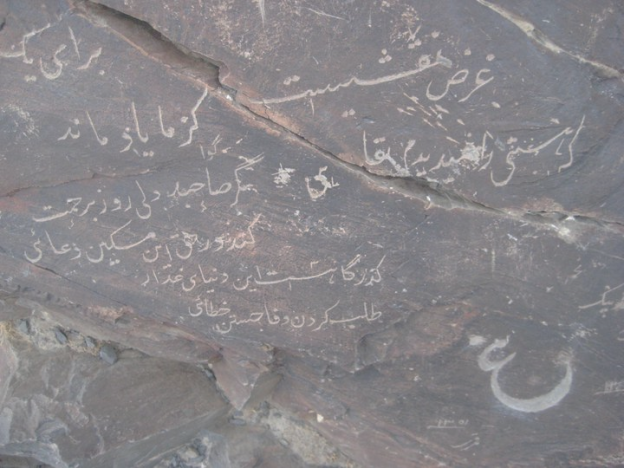 برای یک
غرض نقشیست
کز ما یاد ماند
که هستی را نمیبینم بقا
مگر صاحبدلی روز برحمت
کند در حق این مسکین دعائی
گذرگاهست این دنیای غدار
طلب کردن وفا جستن خطائی